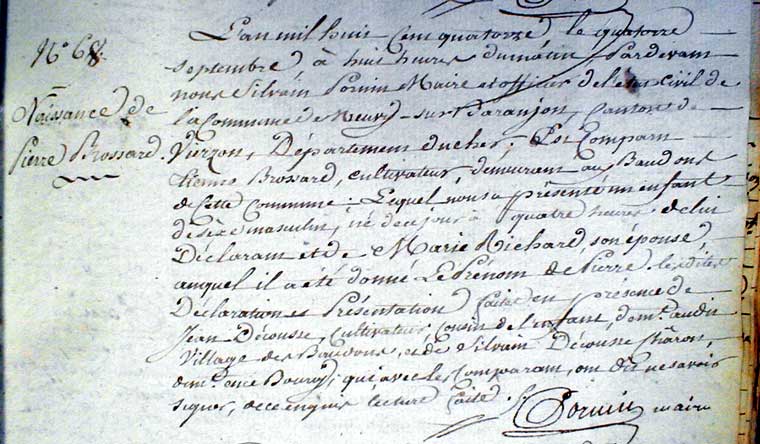 N.º 68.
Naissance de
Pierre Brossard.
L'an mil huit cent quatorze, le quatorze
septembre, à huit heures du matin, Pardevant
nous Silvain Pornin Maire et officier de l'etat Civil de
la Commune de Neuvy-sur-Baranjon, Canton de
Vierzon, Département du cher; Est Comparu
Etienne Brossard, cultivateur, demeurant au Baudons
de Cette Commune: Lequel nous a présenté un enfant
de Sexe masculin, né de ce jour à quatre heures, de lui
Déclarant et de Marie Richard, son épouse,
auquel il a été donné Le Prénom de Pierre. lesdites
Déclaration et Présentation faite en présence de
Jean Décousse, Cultivateur, Cousin de l'enfant, dem.t audit
Village des Baudons, et de Silvain Décousse Charon,
dem.t en ce Bourg, qui avec le Comparant, ont dit ne savoir
signer, de ce enquis lecture faite.
Pornin maire